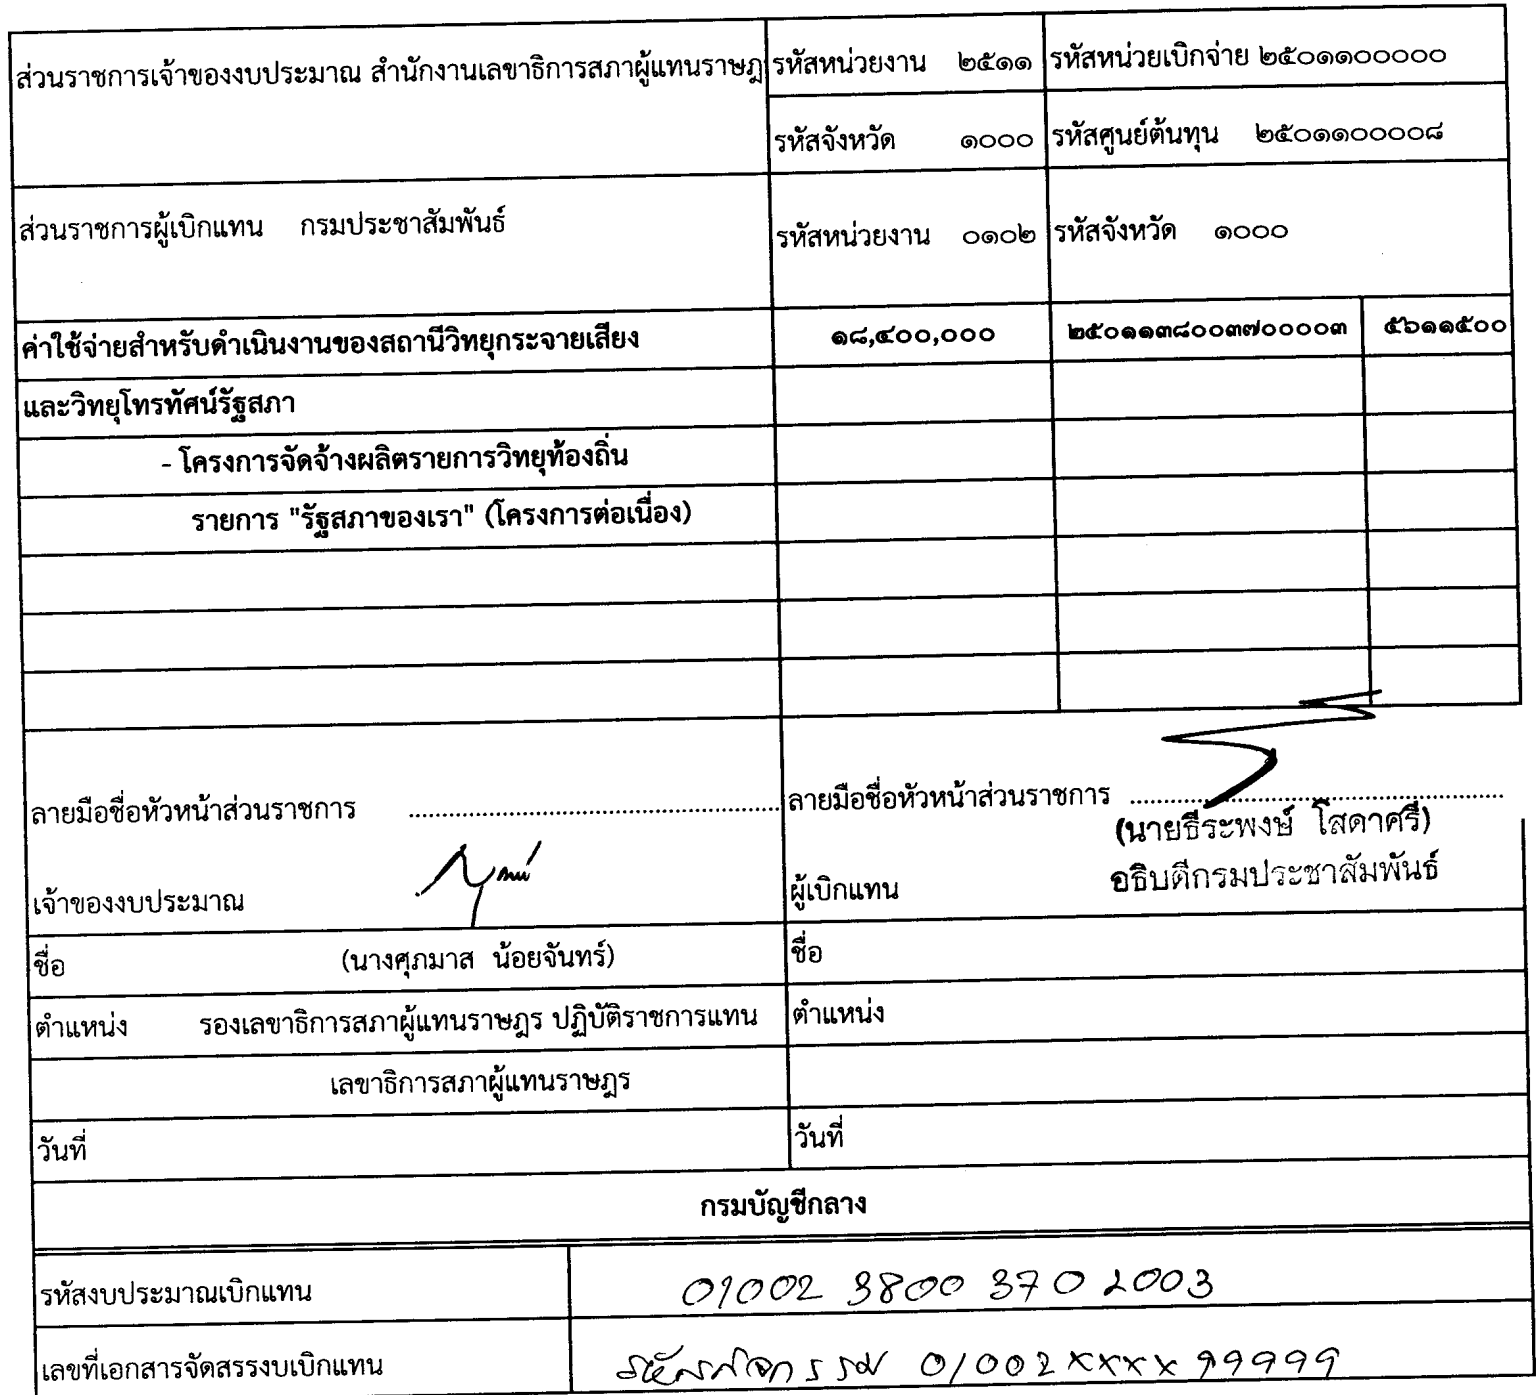 ส่วนราชการเจ้าของงบประมาณ สำนักงานเลขาธิการสภาผู้แทนราษฎ รหัสหน่วยงาน ๒๕๑๑ รหัสหน่วยเบิกจ่าย ๒๕๐๑๑๐๐๐๐๐
รหัสจังหวัด ๑๐๐๐ รหัสศูนย์ต้นทุน ๒๕๐๑๑๐๐๐๐๘
ส่วนราชการผู้เบิกแทน กรมประชาสัมพันธ์ รหัสหน่วยงาน ๐๑๐๒ รหัสจังหวัด ๑๐๐๐
ค่าใช้จ่ายสำหรับดำเนินงานของสถานีวิทยุกระจายเสียง ๑๘,๔๐๐,๐๐๐ ๒๕๐๑๑๓๘๐๐๓๗๐๐๐๐๓ ๕๖๑๑๕๐๐
และวิทยุโทรทัศน์รัฐสภา
- โครงการจัดจ้างผลิตรายการวิทยุท้องถิ่น
รายการ "รัฐสภาของเรา" (โครงการต่อเนื่อง)
ลายมือชื่อหัวหน้าส่วนราชการ ........................ ลายมือชื่อหัวหน้าส่วนราชการ ........................
(นายธีระพงษ์ โสดาศรี)
เจ้าของงบประมาณ ผู้เบิกแทน อธิบดีกรมประชาสัมพันธ์
ชื่อ (นางศุภมาส น้อยจันทร์) ชื่อ
ตำแหน่ง รองเลขาธิการสภาผู้แทนราษฎร ปฏิบัติราชการแทน ตำแหน่ง
เลขาธิการสภาผู้แทนราษฎร
วันที่ วันที่
กรมบัญชีกลาง
รหัสงบประมาณเบิกแทน 01002 3800 370 2003
เลขที่เอกสารจัดสรรงบเบิกแทน รหัสกิจกรรม 01002xxxx99999